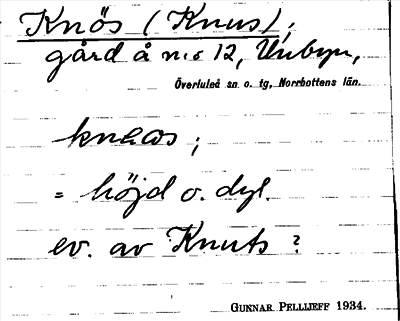 Knös (Knus);
gård å n:o 12, Unbyn,
Överluleå sn o. tg, Norrbottens län.
knœos;
= höjd o. dyl.
ev. av Knuts?
GUNNAR PELLIJEFF 1934.